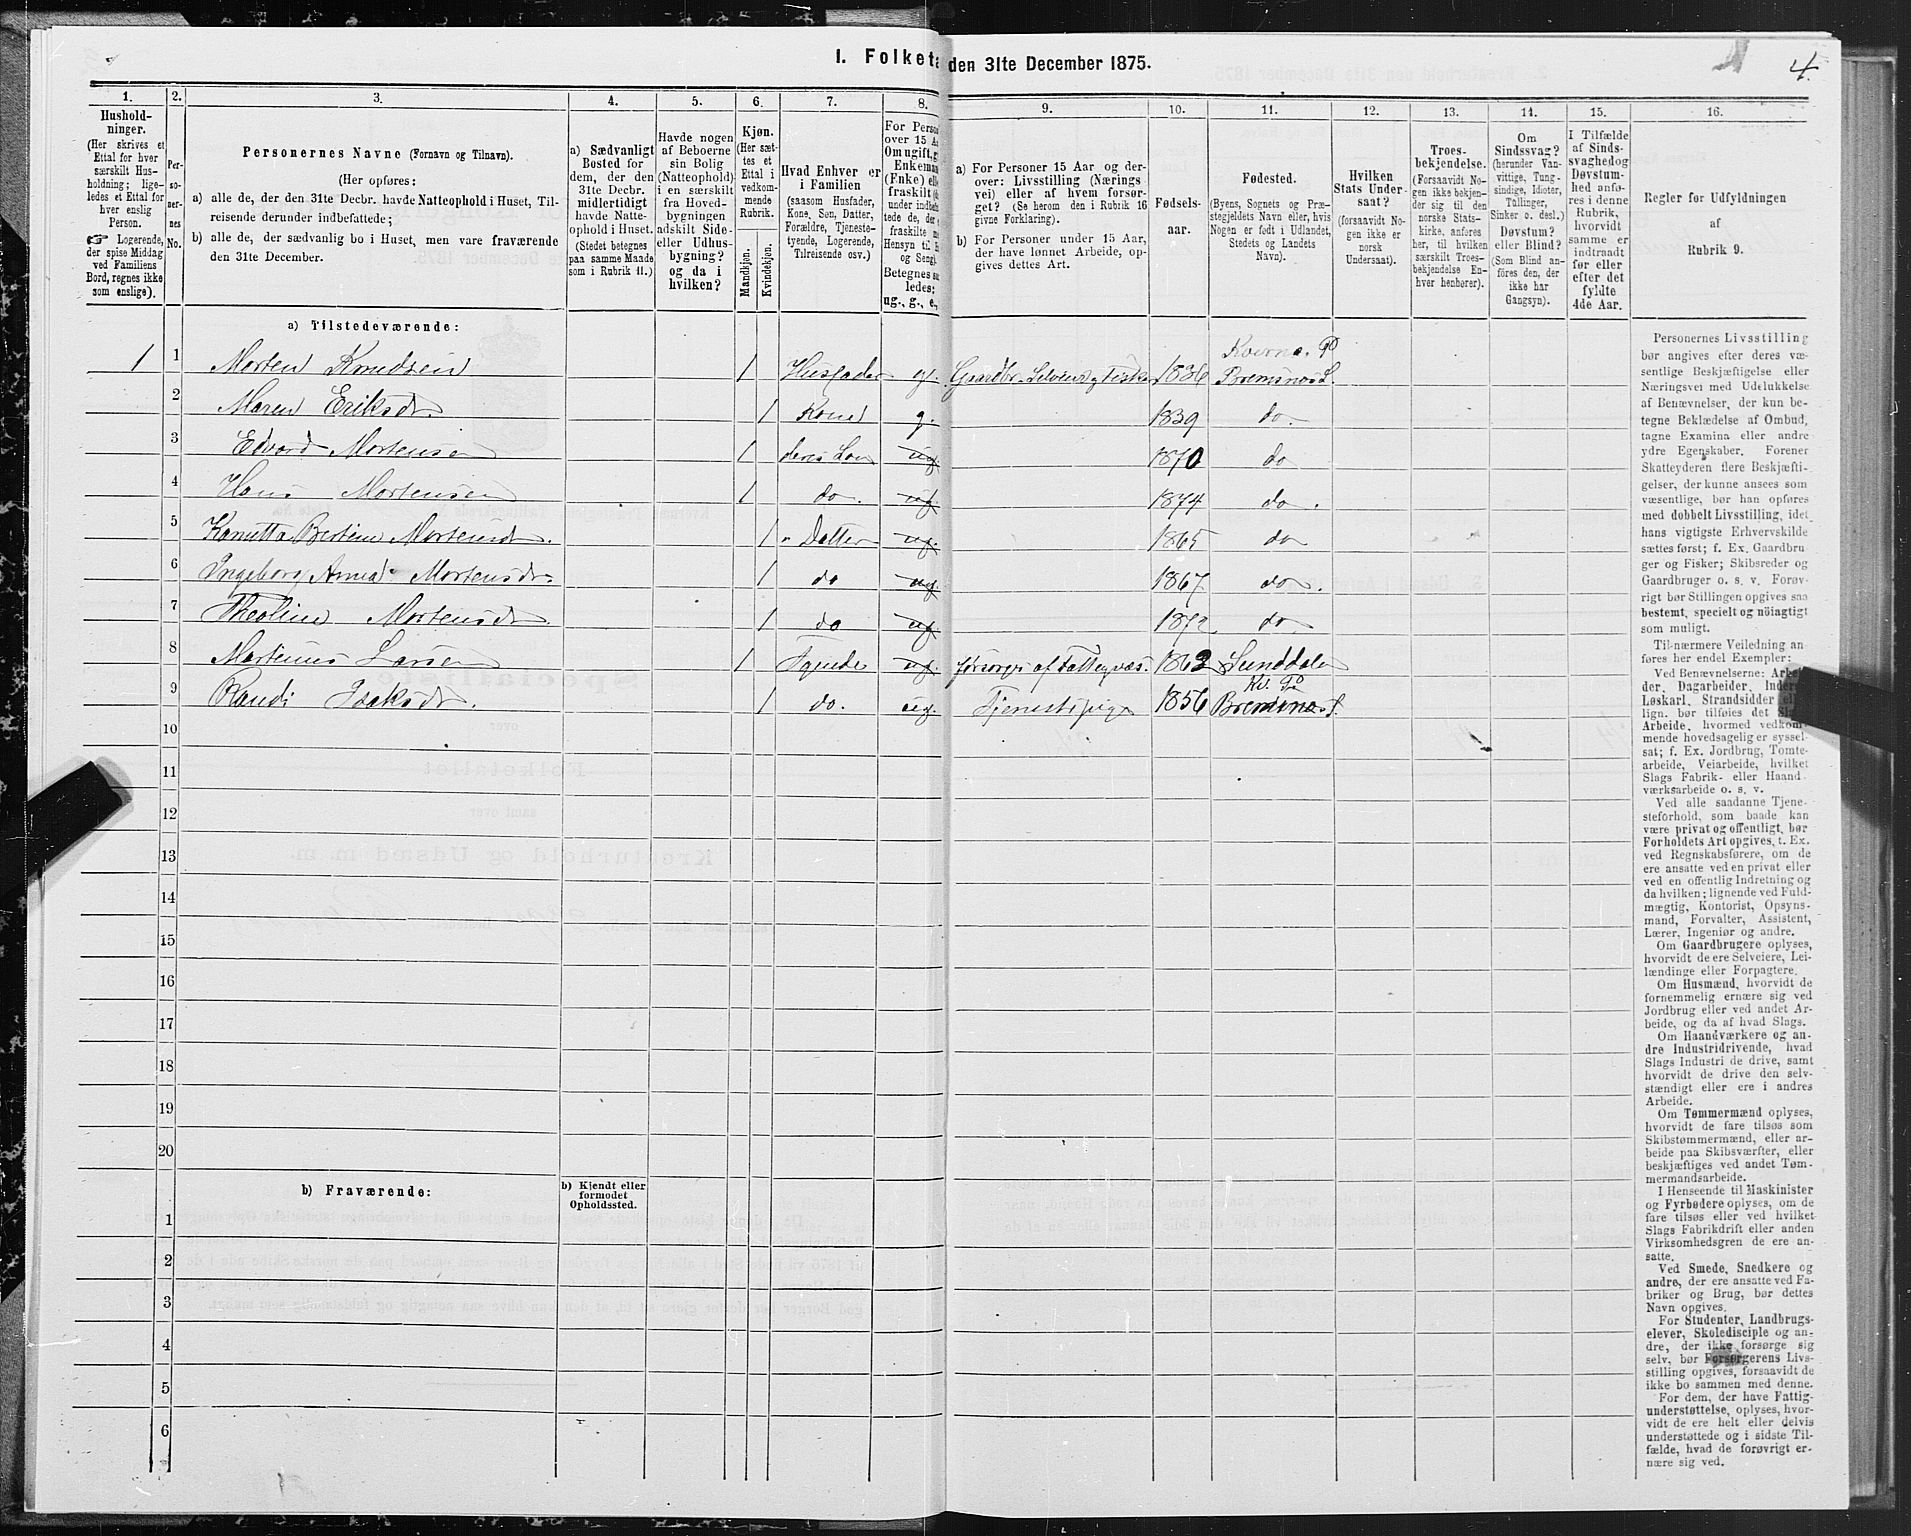 I. Folketa den 31te December 1875.
4.
1.
Hushold-
ninger.
(Her skrives et
Ettal for hver
særskilt Hus-
holdning; lige-
ledes et Ettal for
hver enslig
Person.
☞ Logerende,
der spise Middag
ved Familiens
Bord, regnes ikke
som enslige).
2.
Per-
so-
ner-
nes
No.
3.
Personernes Navne (Fornavn og Tilnavn).
(Her opføres:
a) alle de, der den 31te Decbr. havde Natteophold i Huset, Til-
reisende derunder indbefattede;
b) alle de, der sædvanlig bo i Huset, men vare fraværende
den 31te December.
4.
a) Sædvanligt
Bosted for
dem, der den
31te Decbr.
midlertidigt
havde Natte-
ophold i Huset.
(Stedet betegnes
paa samme Maade
som i Rubrik 11.)
5.
Havde nogen
af Beboerne
sin Bolig
(Natteophold)
i en særskilt
fra Hoved-
bygningen
adskilt Side-
eller Udhus-
bygning?
og da i
hvilken?
6.
Kjøn.
(Her sæt-
tes et
Ettal i
vedkom-
mende
Rubrik.
Mandkjøn.
Kvindekjøn.
7.
Hvad Enhver er
i Familien
(saasom Husfader,
Kone, Søn, Datter,
Forældre, Tjeneste-
tyende, Logerende,
Tilreisende osv.)
8.
For Person
over 15 A
Om ugift, g
Enkeman
(Enke) elle
fraskilt
under indbe
tede de, der
fraskilte
Hensyn til
og Seng).
Betegnes
ledes:
ug., g., e.,
9.
a) For Personer 15 Aar og der-
over: Livsstilling (Nærings-
vei) eller af hvem forsør-
get? (Se herom den i Rubrik 16
givne Forklaring).
b) For Personer under 15 Aar,
der have lønnet Arbeide, op-
gives dettes Art.
10.
Fødsels-
aar.
11.
Fødested.
(Byens, Sognets og Præ-
stegjeldets Navn eller, hvis
Nogen er født i Udlandet,
Stedets og Landets
Navn).
12.
Hvilken
Stats Under-
saat?
(forsaavidt No-
gen ikke er
norsk
Undersaat).
13.
Troes-
bekjendelse.
(Forsaavidt No-
gen ikke bekjen-
der sig til den
norske Stats-
kirke, anføres
her, til hvilken
særskilt Troes-
bekjendelse En-
hver henhører).
14.
Om
Sindssvag?
(herunder Van-
vittige, Tung-
sindige, Idioter,
Tullinger,
Sinker o. desl.)
Døvstum?
eller Blind?
(Som Blind an-
føres den, der
ikke har
Gangsyn).
15.
I Tilfælde
af Sinds-
svaghed og
Døvstum-
hed anfø-
res i denne
Rubrik,
hvorvidt
samme er
indtraadt
før eller
efter det
fyldte
4de Aar.
16.
Regler for Udfyldningen
af
Rubrik 9.
a) Tilstedeværende:
Kverne. P
1 1 Morten Knudsen 1 Husfader g. Gaardbr. Selveier og Fisker 1836 Bremsnes S.
2 Maren Eriksdr. 1 Kone g. 1839 do.
3 Edvard Mortensen 1 deres Søn ug. 1870 do
4 Hans Mortensen 1 do. ug. 1874 do.
5 Kanutta Bertine Mortensdr. 1 " Datter ug. 1865 do
6 Ingeborg Anna Mortensdr. 1 do ug. 1867. do.
7 Theoline Mortensdr. 1 do ug. 1872. do.
8 Martinus Larsen 1 Tyende ug. forsørges af Fattigvæs. 1862 Sunddalen
Kv. P
9 Randi Isaksdr. 1 do. ug. Tjenestepige 1856 Bremsnes S.
10
11
12
13
14
15
16
17
18
19
20
b) Fraværende:
b) Kjendt eller
formodet
Opholdssted.
1
2
3
4
5
6
Personernes Livsstilling
bør angives efter deres væ-
sentlige Beskjæftigelse eller
Næringsvei med Udelukkelse
af Benævnelser, der kun be-
tegne Beklædelse af Ombud,
tagne Examina eller andre
ydre Egenskaber. Forener
Skatteyderen flere Beskjæfti-
gelser, der kunne ansees som
væsentlige, bør han opføres
med dobbelt Livsstilling, idet
hans vigtigste Erhvervskilde
sættes først; f. Ex. Gaardbru-
ger og Fisker; Skibsreder og
Gaardbruger o. s. v. Forøv-
rigt bør Stillingen opgives saa
bestemt, specielt og nöiagtigt
som muligt.
Til nærmere Veiledning an-
føres her endel Exempler:
Ved Benævnelserne: Arbei-
der, Dagarbeider, Inderst,
Løskarl, Strandsidder el.
lign. bør tilføies det Slags
Arbeide, hvormed vedkom-
mende hovedsagelig er syssel-
sat; f. Ex. Jordbrug, Tomte-
arbeide, Veiarbeide, hvilket
Slags Fabrik- eller Haand-
værksarbeide o. s. v.
Ved alle saadanne Tjene-
steforhold, som baade kan
være privat og offentligt, bør
Forholdets Art opgives, t. Ex.
ved Regnskabsførere, om de
ere ansatte ved en privat eller
ved en offentlig Indretning og
da hvilken; lignende ved Fuld-
mægtig, Kontorist, Opsyns-
mand, Forvalter, Assistent,
Lærer, Ingeniør og andre.
Om Gaardbrugere oplyses,
hvorvidt de ere Selveiere, Lei-
lændinge eller Forpagtere.
Om Husmænd, hvorvidt de
fornemmelig ernære sig ved
Jordbrug eller ved andet Ar-
beide, og da af hvad Slags.
Om Haandværkere og an-
dre Industridrivende, hvad
Slags Industri de drive, samt
hvorvidt de drive den selv-
stændigt eller ere i andres
Arbeide.
Om Tømmermænd oplyses,
hvorvidt de fare tilsøs som
Skibstømmermænd, eller ar-
beide paa Skibsværfter, eller
beskjæftiges ved andet Tøm-
mermandsarbeide.
I Henseende til Maskinister
og Fyrbødere oplyses, om de
fare tilsøs eller ved hvilket
Slags Fabrikdrift eller anden
Virksomhedsgren de ere an-
satte.
Ved Smede, Snedkere og
andre, der ere ansatte ved Fa-
briker og Brug, bør dettes
Navn opgives.
For Studenter, Landbrugs-
elever, Skoledisciple og an-
dre, der ikke forsørge sig
selv, bør Forsørgerens Livs-
stilling opgives, forsaavidt de
ikke bo sammen med denne.
For dem, der have Fattig-
understøttelse, oplyses, hvor-
vidt de ere helt eller delvis
understøttede og i sidste Til-
fælde, hvad de forøvrigt er-
nære sig ved.